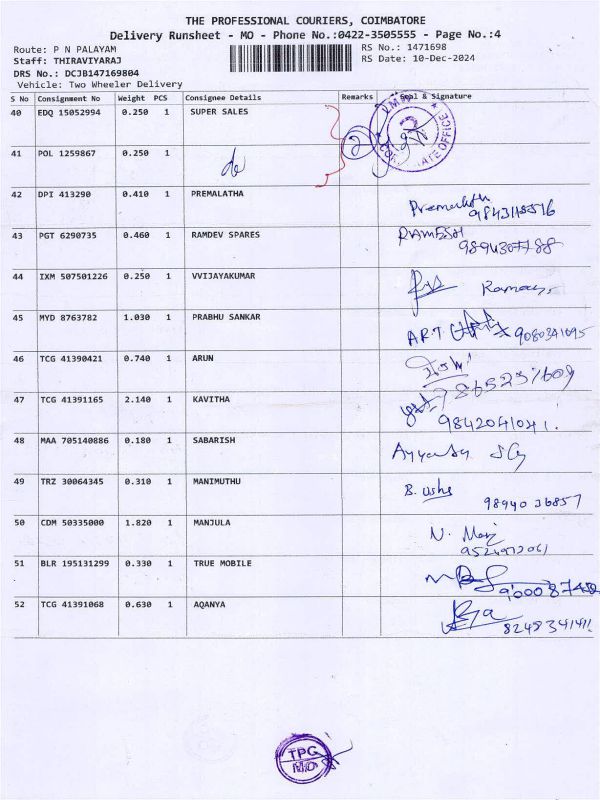 THE PROFESSIONAL COURIERS, COIMBATORE
Delivery Runsheet - MO - Phone No.:0422-3505555 - Page No.:4
Route: P N PALAYAM RS No.: 1471698
Staff: THIRAVIYARAJ RS Date: 10-Dec-2024
DRS No.: DCJB147169804
Vehicle: Two Wheeler Delivery
S No Consignment No Weight PCS Consignee Details Remarks Seal & Signature
40 EDQ 15052994 0.250 1 SUPER SALES
41 POL 1259867 0.250 1
42 DPI 413290 0.410 1 PREMALATHA
43 PGT 6290735 0.460 1 RAMDEV SPARES RAMESH
44 IXM 507501226 0.250 1 VVIJAYAKUMAR
45 MYD 8763782 1.030 1 PRABHU SANKAR
46 TCG 41390421 0.740 1 ARUN
47 TCG 41391165 2.140 1 KAVITHA 9842041041.
48 MAA 705140886 0.180 1 SABARISH
49 TRZ 30064345 0.310 1 MANIMUTHU B. usha 98940 36857
50 CDM 50335000 1.820 1 MANJULA
51 BLR 195131299 0.330 1 TRUE MOBILE
52 TCG 41391068 0.630 1 AQANYA
TPG